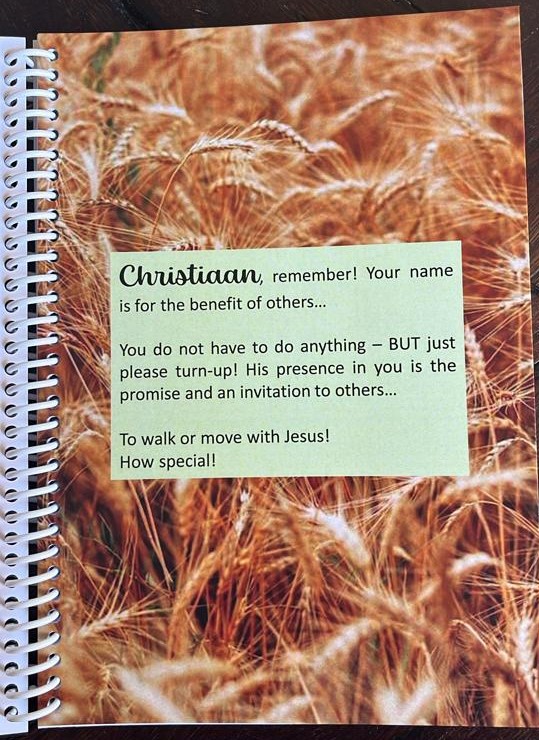 Christiaan, remember! Your name
is for the benefit of others...
You do not have to do anything – BUT just
please turn-up! His presence in you is the
promise and an invitation to others...
To walk or move with Jesus!
How special!